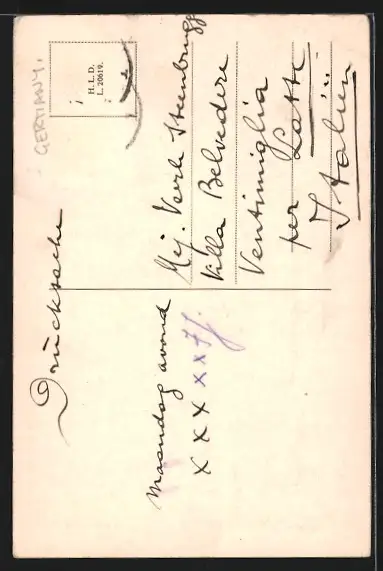 GERMANY.
H. L. D.
L. 20619.
Drucksache
Maandag avond
x x x x x
Mej. Verle Steenbrugge
Villa Belvedere
Ventimiglia
per Latte
Italien